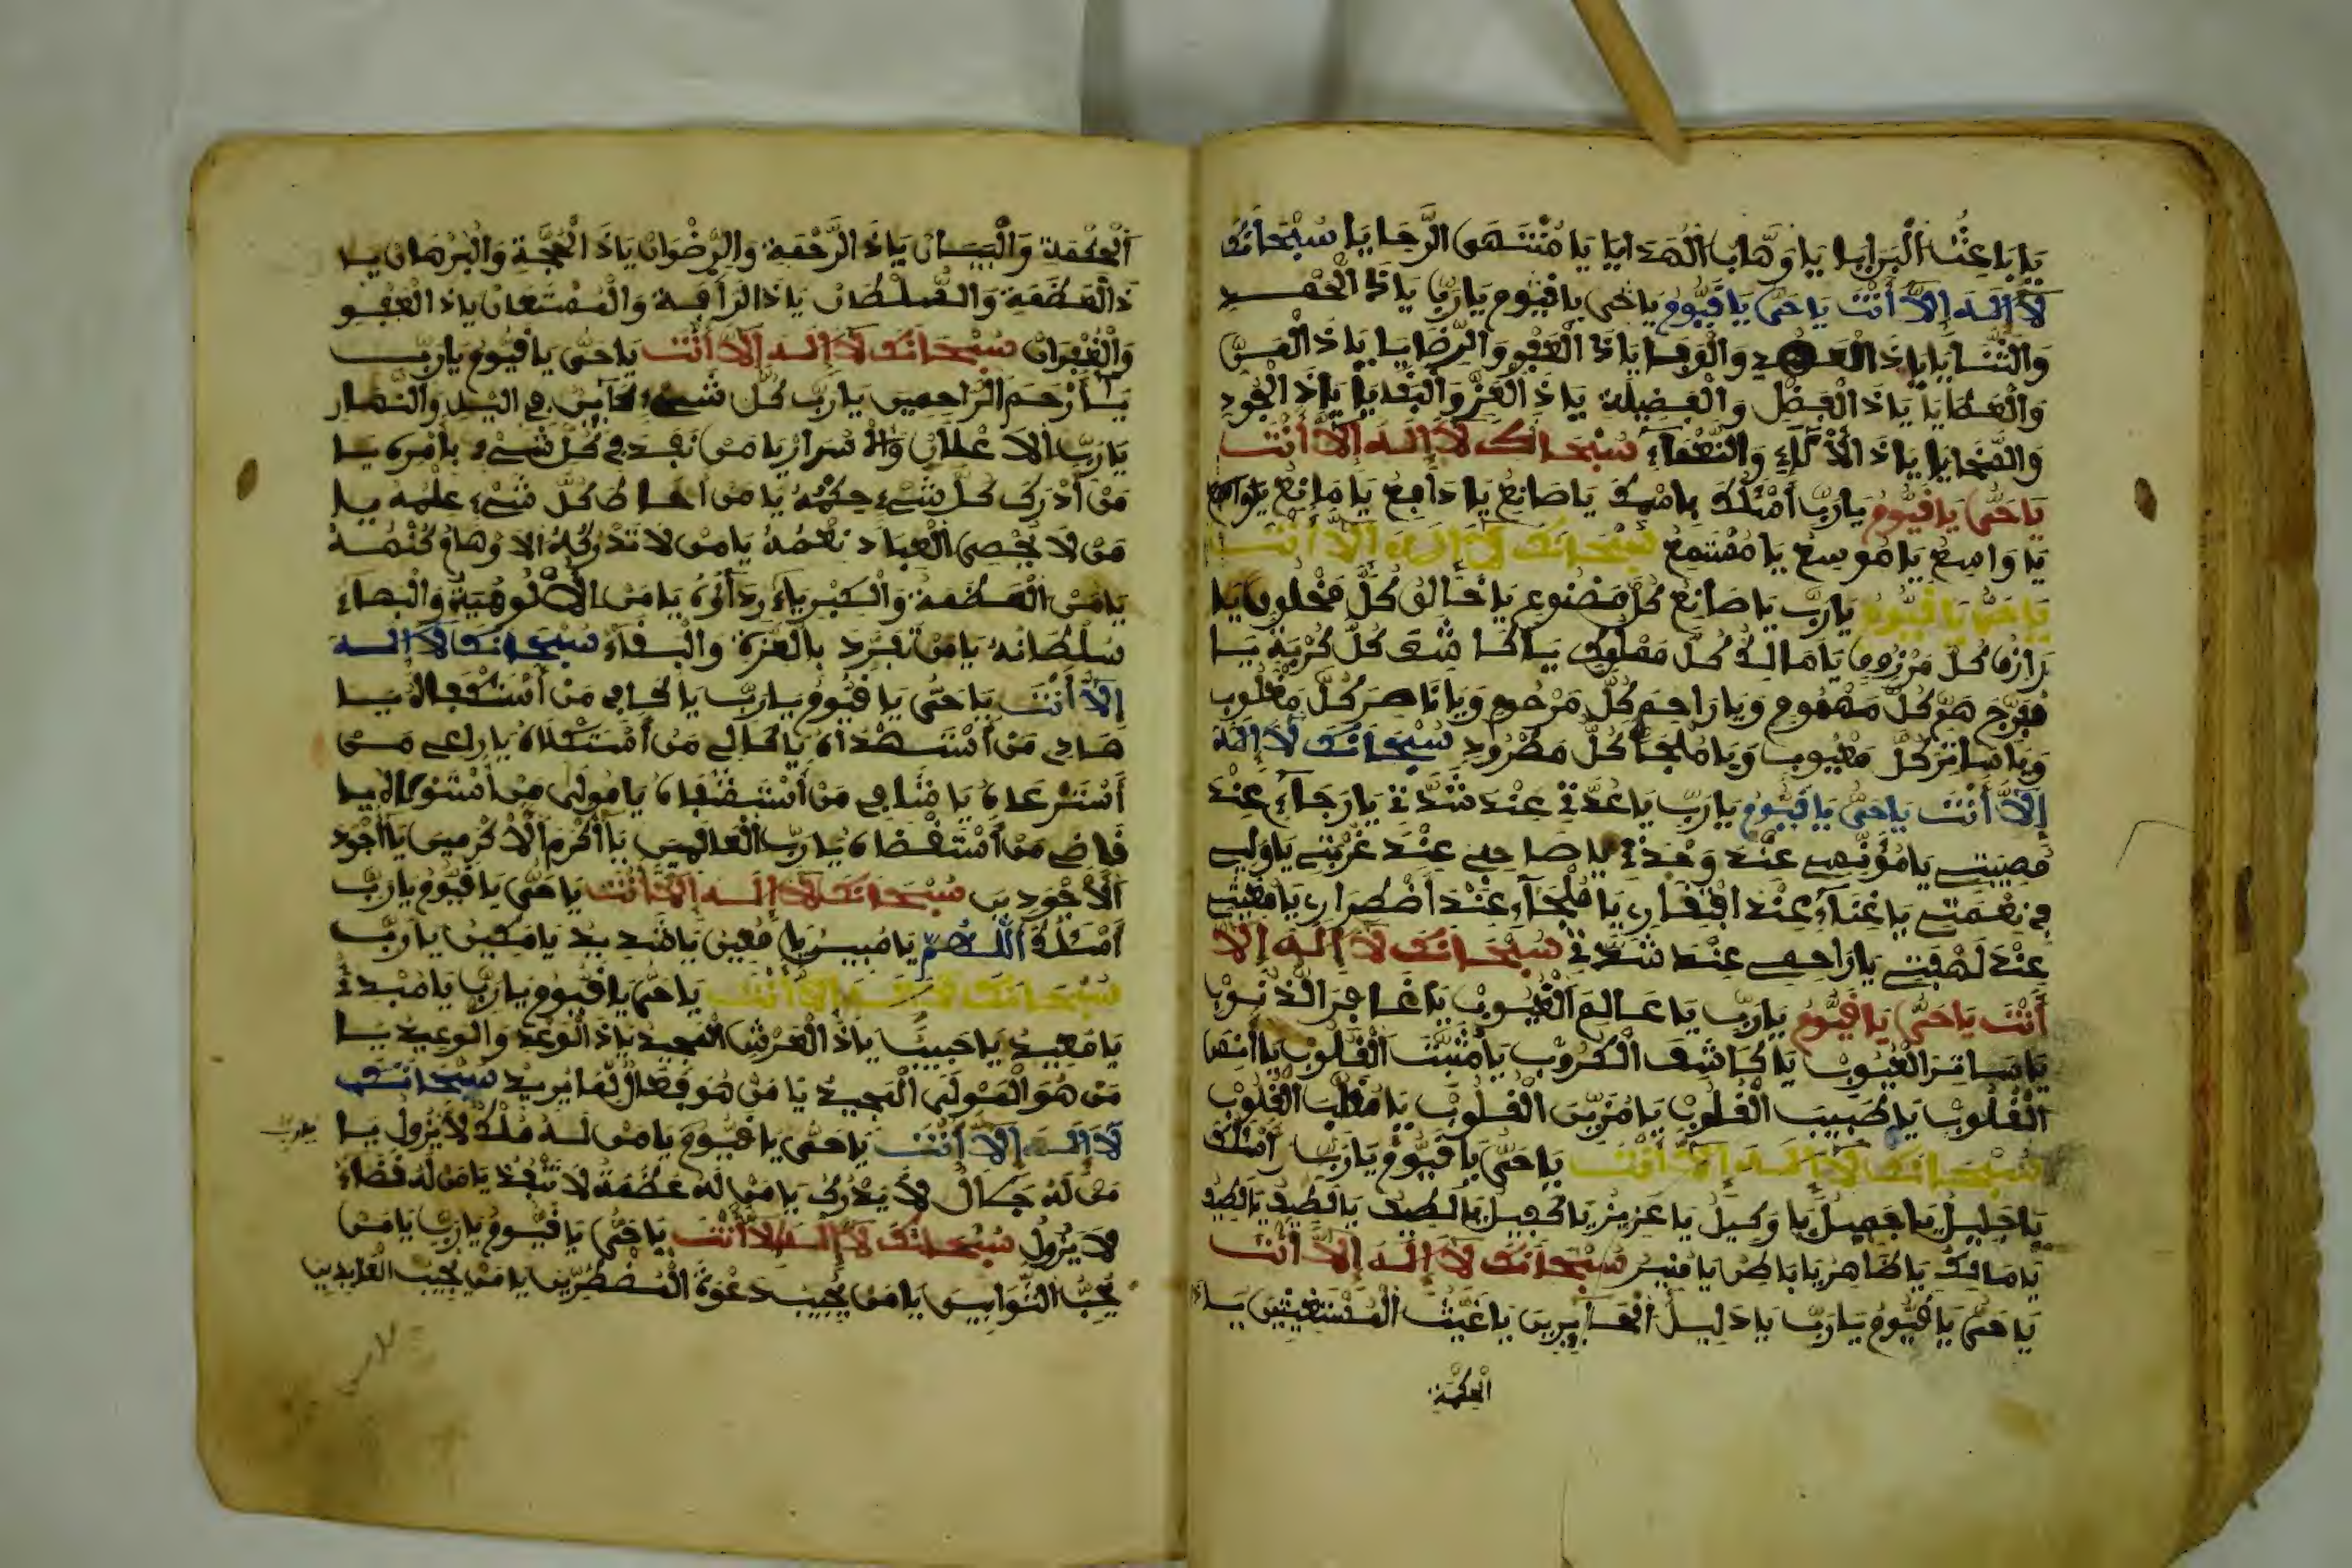 يَا بَاعِثَ الْبَرَايَا يَا وَهَّابَ الْهَدَايَا يَا مُنْتَهَى الرَّجَايَا سُبْحَانَكَ
لَا إِلَهَ إِلَّا أَنْتَ يَا حَيُّ يَا قَيُّومُ يَا حَيُّ يَا قَيُّومُ يَا رَبِّ يَا ذَا الْحَمْدِ
وَالثَّنَايَا يَا ذَ الْعَهْدِ وَالْوَفَايَا يَا ذَا الْعَفْوِ وَالرِّضَايَا يَا ذَ الْمَنِّ
وَالْعَطَايَا يَا ذَ الْفَضْلِ وَالْفَضِيلَةِ يَا ذَ الْعِزِّ وَالْبَقَايَا يَا ذَ الْجُودِ
وَالسَّخَايَا يَا ذَ الْآلَاءِ وَالنَّعْمَاءِ سُبْحَانَكَ لَا إِلَهَ إِلَّا أَنْتَ
يَا حَيُّ يَا قَيُّومُ يَا رَبِّ أَسْئَلُكَ بِاسْمِكَ يَا صَانِعُ يَا دَافِعُ يَا مَانِعُ
يَا وَاسِعُ يَا مُوسِعُ يَا مُسْتَمِعُ سُبْحَانَكَ لَا إِلَهَ إِلَّا أَنْتَ
يَا حَيُّ يَا قَيُّومُ يَا رَبِّ يَا صَانِعَ كُلِّ مَصْنُوعٍ يَا خَالِقَ كُلِّ مَخْلُوقٍ يَا
رَازِقَ كُلِّ مَرْزُوقٍ يَا مَالِكَ كُلِّ مَمْلُوكٍ يَا كَاشِفَ كُلِّ كُرْبَةٍ يَا
مُفَرِّجَ هَمِّ كُلِّ مَهْمُومٍ وَيَا رَاحِمَ كُلِّ مَرْحُومٍ وَيَا نَاصِرَ كُلِّ مَغْلُوبٍ
وَيَا سَاتِرَ كُلِّ مَعْيُوبٍ وَيَا مَلْجَأَ كُلِّ مَطْرُودٍ سُبْحَانَكَ لَا إِلَهَ
إِلَّا أَنْتَ يَا حَيُّ يَا قَيُّومُ يَا رَبِّ يَا عُدَّتِي عِنْدَ شِدَّتِي يَا رَجَاءِ عِنْدَ
مُصِيبَتِي يَا مُؤْنِسِي عِنْدَ وَحْدَتِي يَا صَاحِبِي عِنْدَ غُرْبَتِي يَا وَلِيِّي
فِي نِعْمَتِي يَا غِنَاءِ عِنْدَ افْتِقَارِي يَا مَلْجَاءِ عِنْدَ اضْطِرَارِي يَا مُغِيثِي
عِنْدَ لَهْفَتِي يَا رَاحِمِي عِنْدَ شِدَّتِي سُبْحَانَكَ لَا إِلَهَ إِلَّا
أَنْتَ يَا حَيُّ يَا قَيُّومُ يَا رَبِّ يَا عَالِمَ الْغُيُوبِ يَا غَافِرَ الذُّنُوبِ
يَا سَاتِرَ الْعُيُوبِ يَا كَاشِفَ الْكُرُوبِ يَا مُثَبِّتَ الْقُلُوبِ يَا أَنِيسَ
الْقُلُوبِ يَا طَبِيبَ الْقُلُوبِ يَا مُزَيِّنَ الْقُلُوبِ يَا مُقَلِّبَ الْقُلُوبِ
سُبْحَانَكَ لَا إِلَهَ إِلَّا أَنْتَ يَا حَيُّ يَا قَيُّومُ يَا رَبِّ أَسْئَلُكَ
يَا جَلِيلُ يَا جَمِيلُ يَا وَكِيلُ يَا عَزِيزُ يَا كَفِيلُ يَا لَطِيفُ يَا لَطِيفُ يَا لَطِيفُ
يَا مَالِكُ يَا ظَاهِرُ يَا بَاطِنُ يَا مُنِيرُ سُبْحَانَكَ لَا إِلَهَ إِلَّا أَنْتَ
يَا حَيُّ يَا قَيُّومُ يَا رَبِّ يَا دَلِيلَ الْحَائِرِينَ يَا غِيَّثَ الْمُسْتَغِيثِينَ
الْحِكْمَةِ
الْحِكْمَةِ وَالْبَيَانِ يَا ذَ الرَّحْمَةِ وَالرِّضْوَانِ يَا ذَ الْحُجَّةِ وَالْبُرْهَانِ يَا
ذَ الْعَظَمَةِ وَالسُّلْطَانِ يَا ذَ الرَّأْفَةِ وَالْمُسْتَعَانِ يَا ذَ الْعَفْوِ
وَالْغُفْرَانِ سُبْحَانَكَ لَا إِلَهَ إِلَّا أَنْتَ يَا حَيُّ يَا قَيُّومُ يَا رَبِّ
يَا أَرْحَمَ الرَّاحِمِينَ يَا رَبَّ كُلِّ شَيْءٍ كَائِنٍ فِي الَّيْلِ وَالنَّهَارِ
يَا رَبَّ الْإِعْلَانِ وَالْأَسْرَارِ يَا مَنْ نَفَذَ فِي كُلِّ شَيْءٍ بِأَمْرِهِ يَا
مَنْ أَدْرَكَ كُلَّ شَيْءٍ حِكْمُهُ يَا مَنْ أَحَاطَ كُلَّ شَيْءٍ عِلْمُهُ يَا
مَنْ لَا يُحْصِي الْعِبَادُ نِعَمَهُ يَا مَنْ لَا تُدْرِكُهُ الْأَوْهَامُ كُنْهَهُ
يَا مَنِ الْعَظَمَةُ وَالْكِبْرِيَاءُ رِدَاؤُهُ يَا مَنِ الْأُلُوهِيَّةُ وَالْبَهَاءِ
سُلْطَانُهُ يَا مَنْ تَفَرَّدَ بِالْعِزَّةِ وَالْبَقَاءِ سُبْحَانَكَ لَا إِلَهَ
إِلَّا أَنْتَ يَا حَيُّ يَا قَيُّومُ يَا رَبِّ يَا كَافِي مَنْ أَسْتَكْفَاهُ يَا
هَادِي مَنْ أَسْتَهْدَاهُ يَا كَالِي مَنْ أَسْتَكْلَاهُ يَا رَاعِي مَنْ
أَسْتَرْعَاهُ يَا شَافِي مَنْ أَسْتَشْفَاهُ يَا مُولِي مَنْ أَسْتَوْلَاهُ يَا
قَاضِي مَنْ أَسْتَقْضَاهُ يَا رَبَّ الْعَالَمِينَ يَا أَكْرَمَ الْأَكْرَمِينَ يَا أَجْوَدَ
الْأَجْوَدِينَ سُبْحَانَكَ لَا إِلَهَ إِلَّا أَنْتَ يَا حَيُّ يَا قَيُّومُ يَا رَبِّ
أَسْئَلُكَ اللَّهُمَّ يَا مُبِينُ يَا مُعِينُ يَا شَدِيدُ يَا مَكِينُ يَا رَبِّ
سُبْحَانَكَ لَا إِلَهَ إِلَّا أَنْتَ يَا حَيُّ يَا قَيُّومُ يَا رَبِّ يَا مُبْدِئُ
يَا مُعِيدُ يَا حَبِيبُ يَا ذَ الْعَرْشِ الْمَجِيدِ يَا ذَ الْوَعْدِ وَالْوَعِيدِ يَا
مَنْ هُوَ الْمَوْلَى الْمَجِيدُ يَا مَنْ هُوَ فَعَّالٌ لِمَا يُرِيدُ سُبْحَانَكَ
لَا إِلَهَ إِلَّا أَنْتَ يَا حَيُّ يَا قَيُّومُ يَا مَنْ لَهُ مُلْكٌ لَا يَزُولُ يَا
يَا رَبِّ
مَنْ لَهُ جَلَالٌ لَا يُدْرَكُ يَا مَنْ لَهُ عَظَمَةٌ لَا تَنْفَذُ يَا مَنْ لَهُ قَضَاءٌ
لَا يَزُولُ سُبْحَانَكَ لَا إِلَهَ إِلَّا أَنْتَ يَا حَيُّ يَا قَيُّومُ يَا رَبِّ يَا مَنْ
يُحِبُّ التَّوَّابِينَ يَا مَنْ يُجِيبُ دَعْوَةَ الْمُضْطَرِّينَ يَا مَنْ يُحِبُّ الْعَابِدِينَ